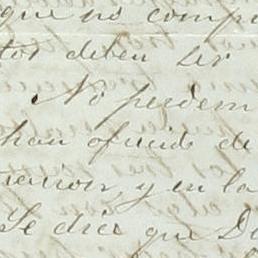 que no comp
tor deben ser
No pueden
han ofrecido de
y en la
Se dice que D